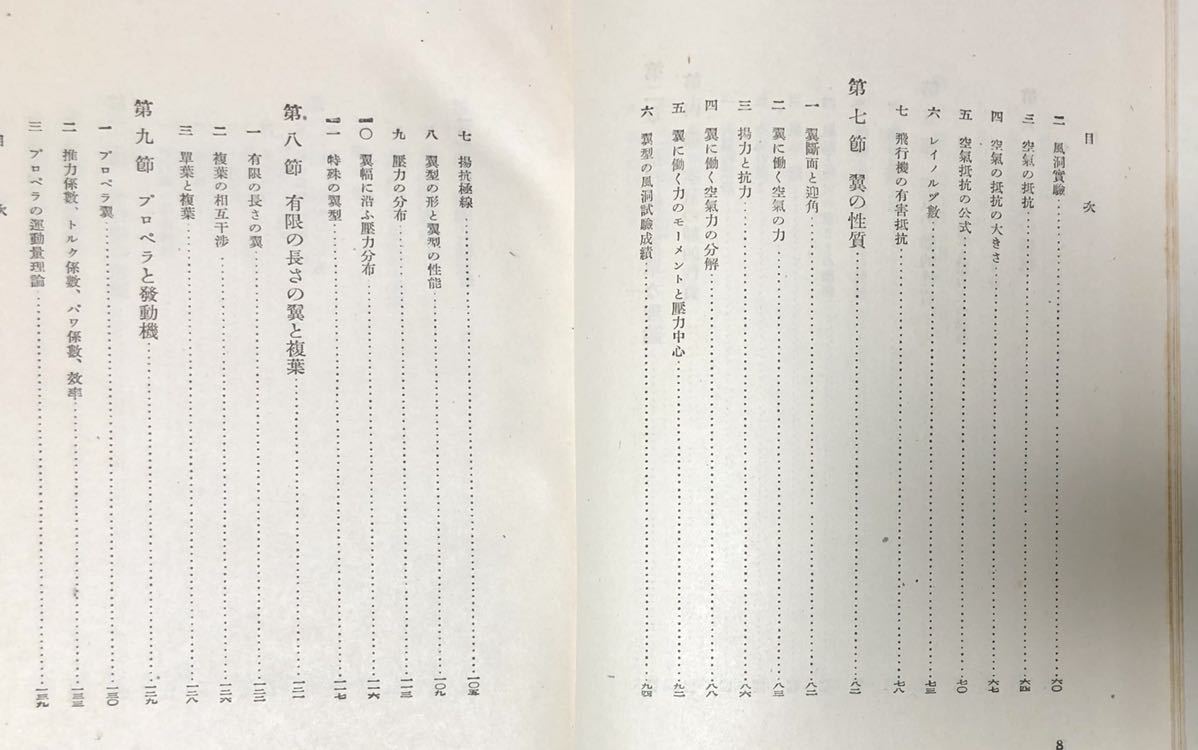 目次
二 風洞實驗……六〇
三 空氣の抵抗……六四
四 空氣の抵抗の大きさ……六七
五 空氣抵抗の公式……七〇
六 レイノルヅ數……七三
七 飛行機の有害抵抗……七八
第七節 翼の性質……八二
一 翼斷面と迎角……八二
二 翼に働く空氣の力……八三
三 揚力と抗力……八六
四 翼に働く空氣力の分解……八八
五 翼に働く力のモーメントと壓力中心……九二
六 翼型の風洞試驗成績……九四
8
七 揚抗極線……一〇五
八 翼型の形と翼型の性能……一〇九
九 壓力の分布……一一三
一〇 翼幅に沿ふ壓力分布……一一六
一一 特殊の翼型……一一七
第八節 有限の長さの翼と複葉……一二一
一 有限の長さの翼……一二三
二 複葉の相互干渉……一二六
三 單葉と複葉……一二八
第九節 プロペラと發動機……一二九
一 プロペラ翼……一三〇
二 推力係數、トルク係數、パワ係數、效率……一三三
三 プロペラの運動量理論……一三九
目次